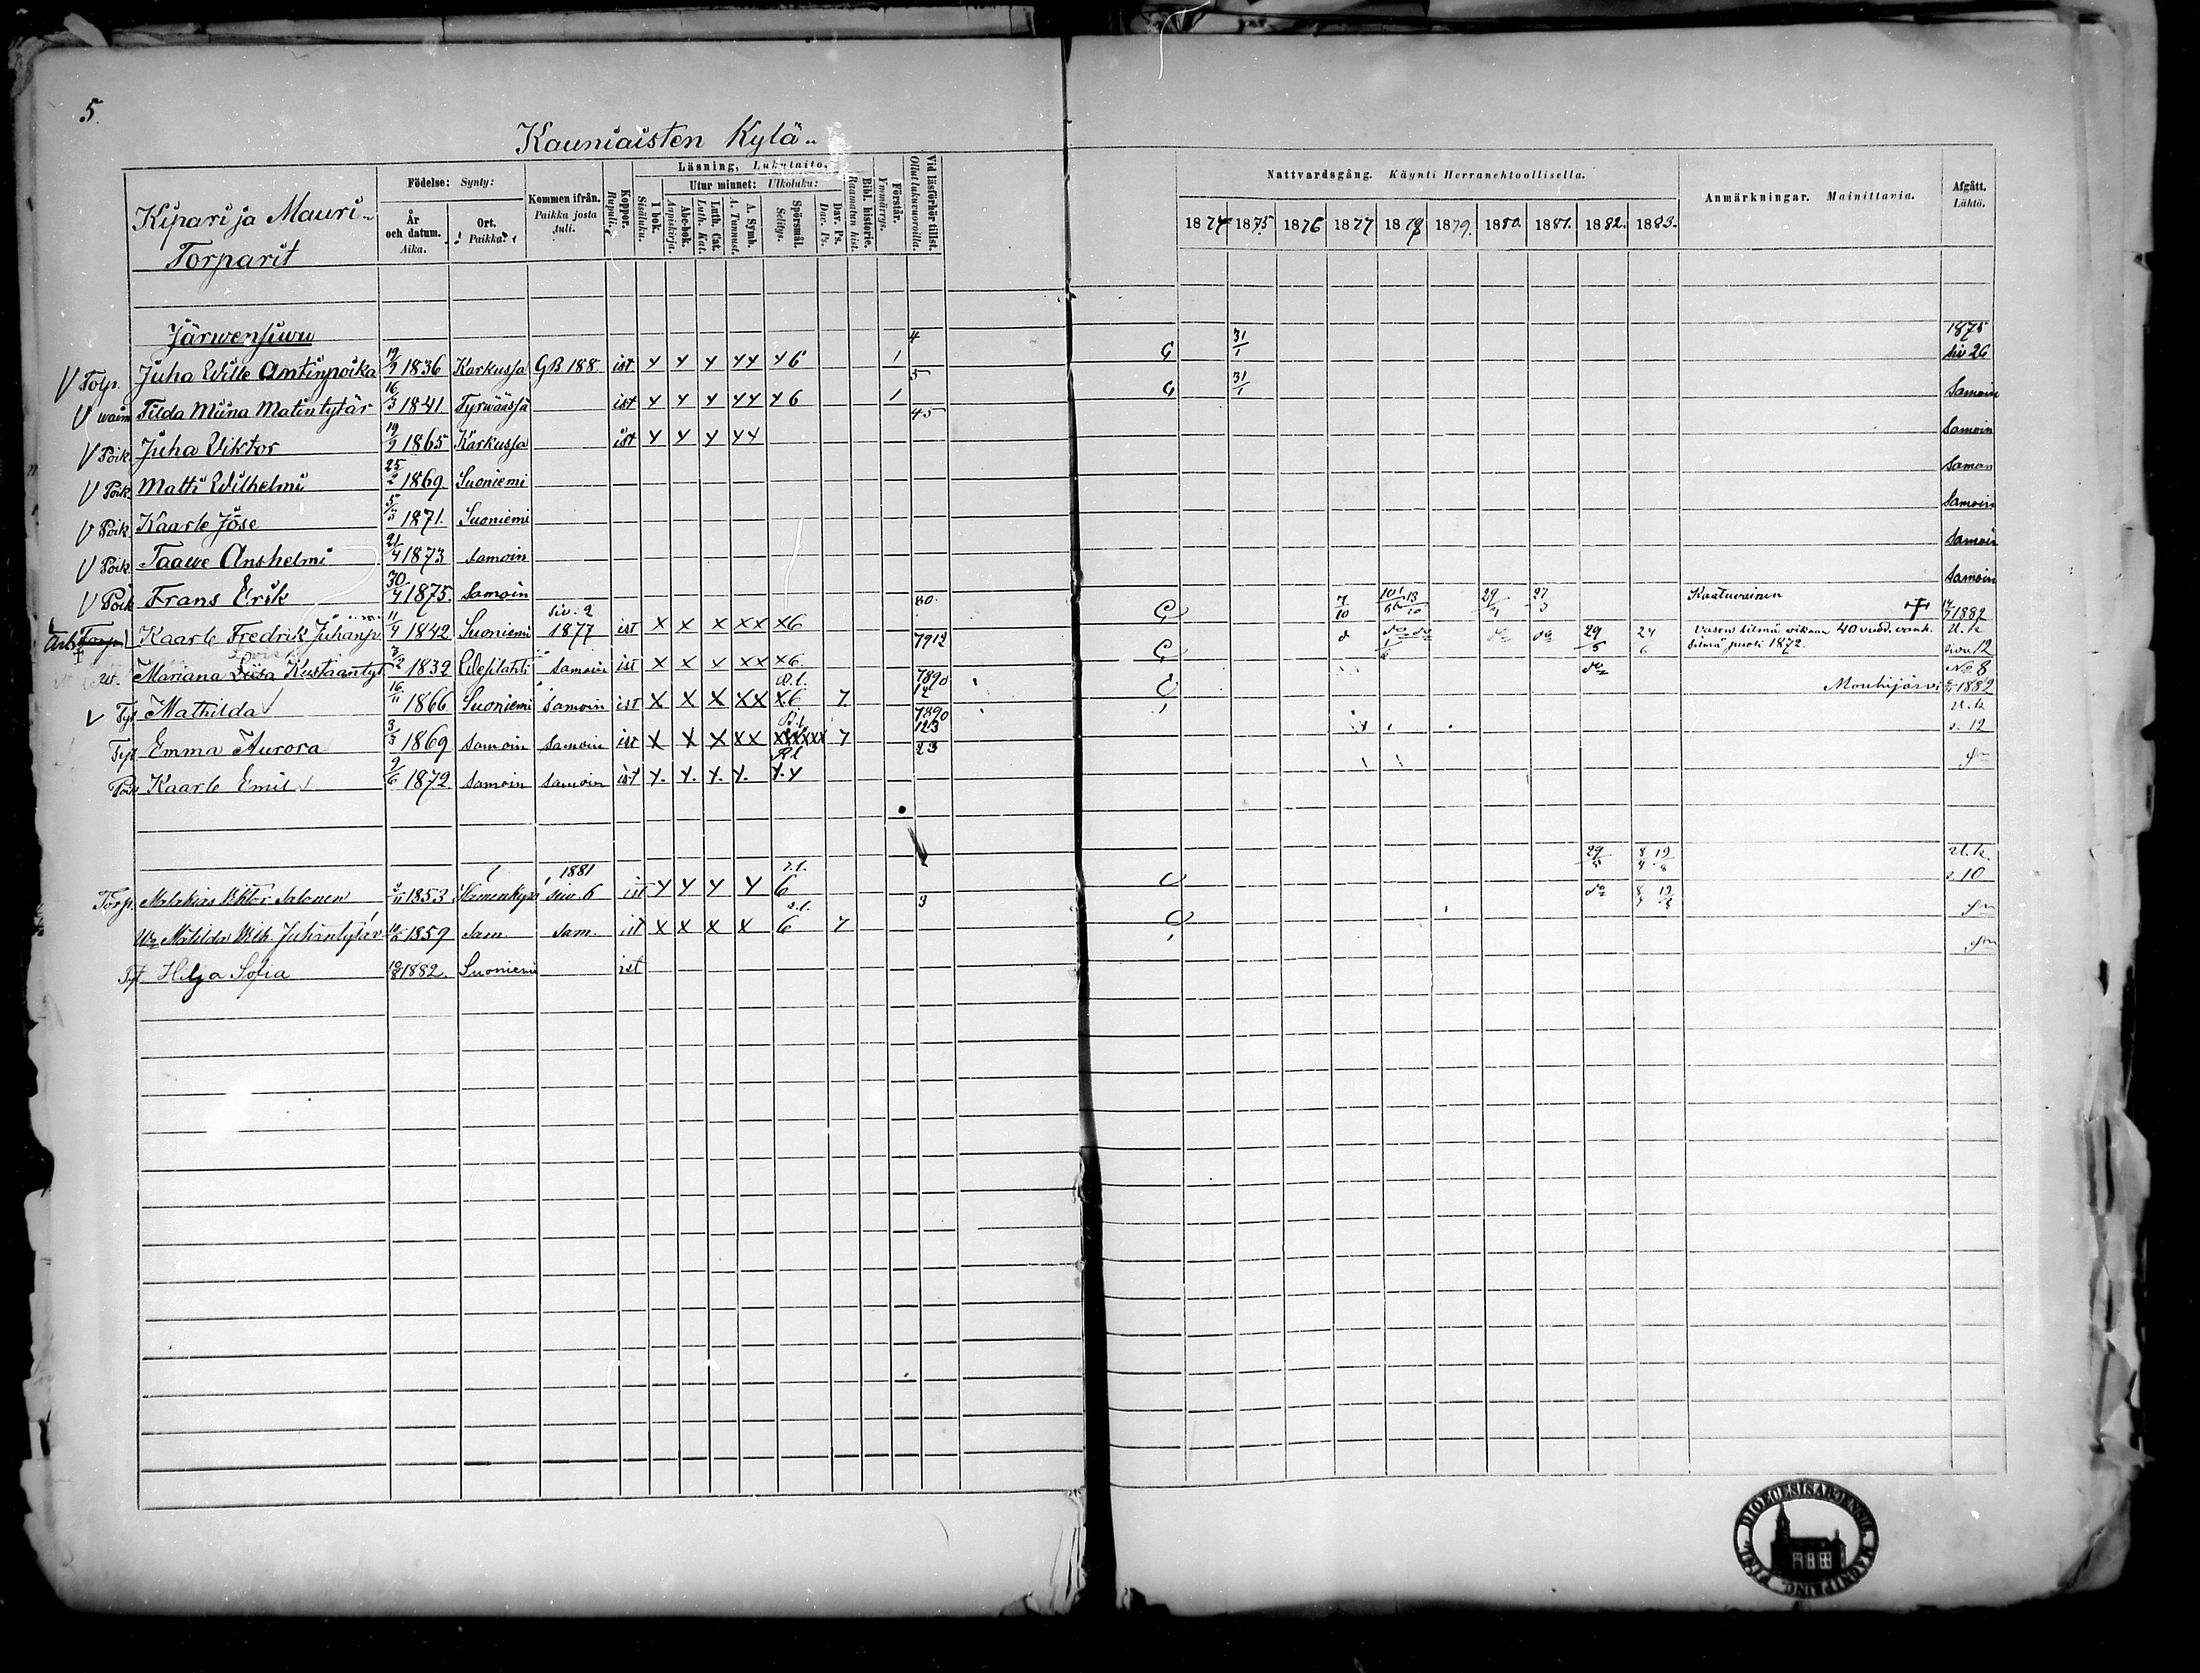 5.
Kauniaisten Kylä
Kipari ja Mauri
Torparit
Födelse: Synty:
År och datum. Aika.
Ort. Paikka.
Kommen ifrån. Paikka josta tuli.
Koppor. Rupuli.
Läsning, Lukutaito.
I bok. Sisäluku.
Utur minnet: Ulkoluku:
Abc-bok. Aapiskirja.
Luth. Cat. Luth. Kat.
A. Symb. A. Tunnust.
Spörsmål. Selitys.
Dav. Ps. Dav. Ps.
Bibl. historie. Raamatun hist.
Förstår. Ymmärrys.
Vid läsförhör tillst. Ollut lukuvuoroilla.
Nattvardsgång. Käynti Herranehtoollisella.
1874 1875 1876 1877 1878 1879. 1880. 1881. 1882. 1883.
Anmärkningar. Mainittavia.
Afgått. Lähtö.
Järwensuu 4 1875
V Torp. Juha Wille Antinpoika 19/9 1836 Karkussa GB 188 ist y y y yy y6 1 G 31/1 siv 26
5
V waim Tilda Miina Matintytär 16/3 1841 Tyrwäässä ist y y y yy y6 1 G 31/1 Samoin
45
V Poik Juha Viktor 19/9 1865 Karkussa ist y y y yy Samoin
V Poik Matti Wilhelmi 25/2 1869 Suoniemi Samoin
V Poik Kaarle Jose 5/3 1871. Suoniemi Samoin
V Poik. Taawe Anshelmi 21/4 1873 samoin Samoin
V Poik Frans Erik 30/4 1875. Samoin Samoin
siv. 2 80. Kaatuvainen
Torp Kaarle Fredrik Juhanp 11/9 1842 Suoniemi 1877 ist x x x xx x6 7/10 29/4 27/3 † 1882
7912 Vasen silmä vikaan 40 vuod. vanh. U.k
Mariana Liisa Kustaantyt 1832 Wesilahti samoin ist x x x xx x6. 29/5 24/6 silmä puoli 1872. sivu 12
R.l. 7890 No 8
V Tyt Mathilda 16/11 1866 Suoniemi samoin ist x x x xx x6 7. Mouhijärvi 1882
7890 U.k
Tyt Emma Aurora 3/3 1869 samoin samoin ist x x x xx 7 123 s. 12
R.l 23
Poik Kaarle Emil 2/6 1872. samoin samoin ist y. y. y. y. y.y
1881 r.l. 2 29/5 8/4 19/8 U.k.
Torp. Malakias Viktor Salonen 2/11 1853 Hämeenkyrö siv. 6 ist y y y y 6 s. 10
s.l. 3 8/4 19/8
Matilda Wilh. Juhantytär 1859 Sam. Sam. ist x x x x 6 7
Tyt Hilja Sofia 10/8 1882. Suoniemi ist
DIOECESIS ABOENSIL MAGNI PRINC. FINL.